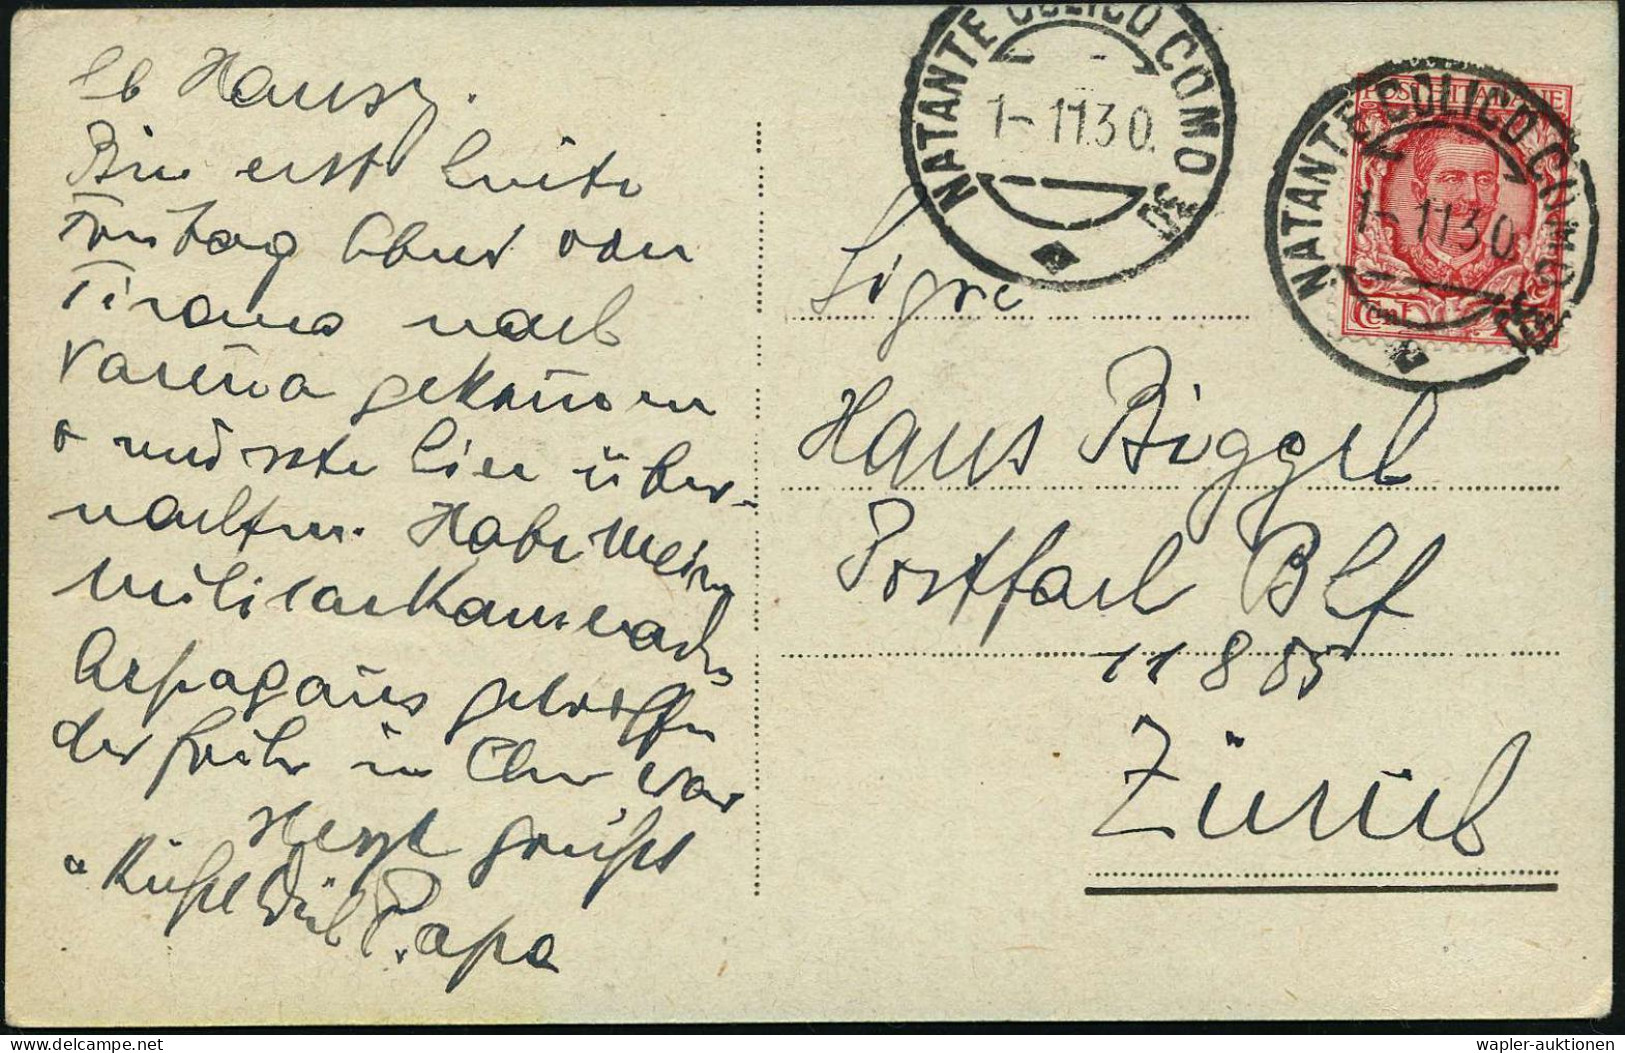 lb Hansy.
Bin erst heute
Abend von
Tirano nach
Varenna gekommen
hier über-
nachten. Habe mein
Militärkamerad
getroffen
der früher in Chur war
Herzl grüsst
u küsst Dich Papa
NATANTE COLICO COMO
1-11.30.
NATANTE COLICO COMO
1-11.30.
POSTE ITALIANE
Cent
Sigre
Hans Biggel
Postfach Bhf
11885
Zürich
wapler-auktionen